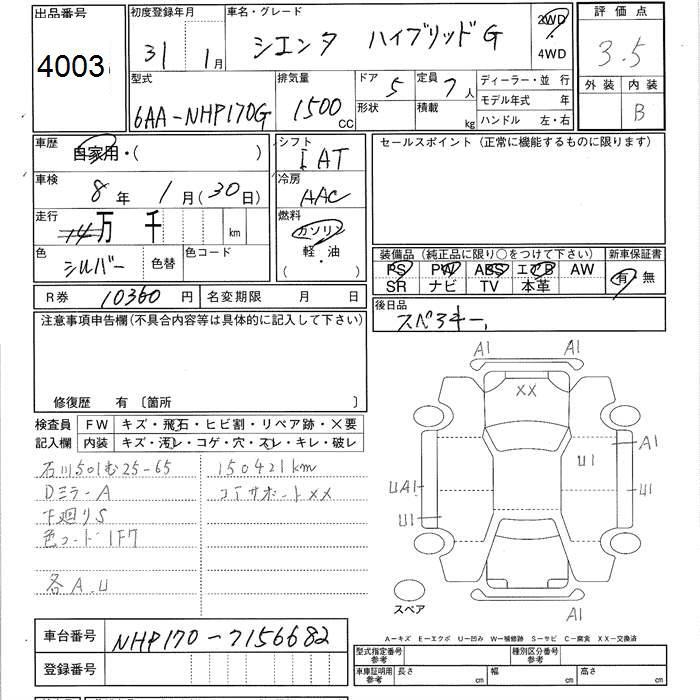 出品番号 初度登録年月 車名・グレード 評価点
4003 31年 1月 シエンタ ハイブリッドG 2WD 4WD 3.5
型式 排気量 ドア 5 定員 7人 ディーラー・並行 外装 内装
6AA-NHP170G 1500CC 形状 積載 kg モデル年式 年 B
ハンドル 左・右
車歴 自家用・( ) シフト IAT セールスポイント (正常に機能するものに限ります)
車検 8年 1月(30日) 冷房 AAC
走行 14万 千 km 燃料 ガソリン
色 シルバー 色替 色コード 軽・油 ( )
装備品 (純正品に限り○をつけて下さい) 新車保証書
PS PW ABS エアB AW 有・無
SR ナビ TV 本革
R券 10360円 名変期限 月 日 後日品
スペアキー
注意事項申告欄(不具合内容等は具体的に記入して下さい)
修復歴 有 〔箇所 〕
検査員 FW キズ・飛石・ヒビ割・リペア跡・×要
記入欄 内装 キズ・汚レ・コゲ・穴・スレ・キレ・破レ
石川501む25-65 150421km
DミラーA コアサポートXX
下廻りS
色コード1F7
各A.U
A1 A1
XX
A1
U1
UA1 U1
U1
A1
スペア
A-キズ E-エクボ U-凹み W-補修跡 S-サビ C-腐食 XX-交換済
車台番号 NHP170-7156682
型式指定番号 参考 種別区分番号 参考
登録番号 車庫証明用 参考 長さ cm 幅 cm 高さ cm